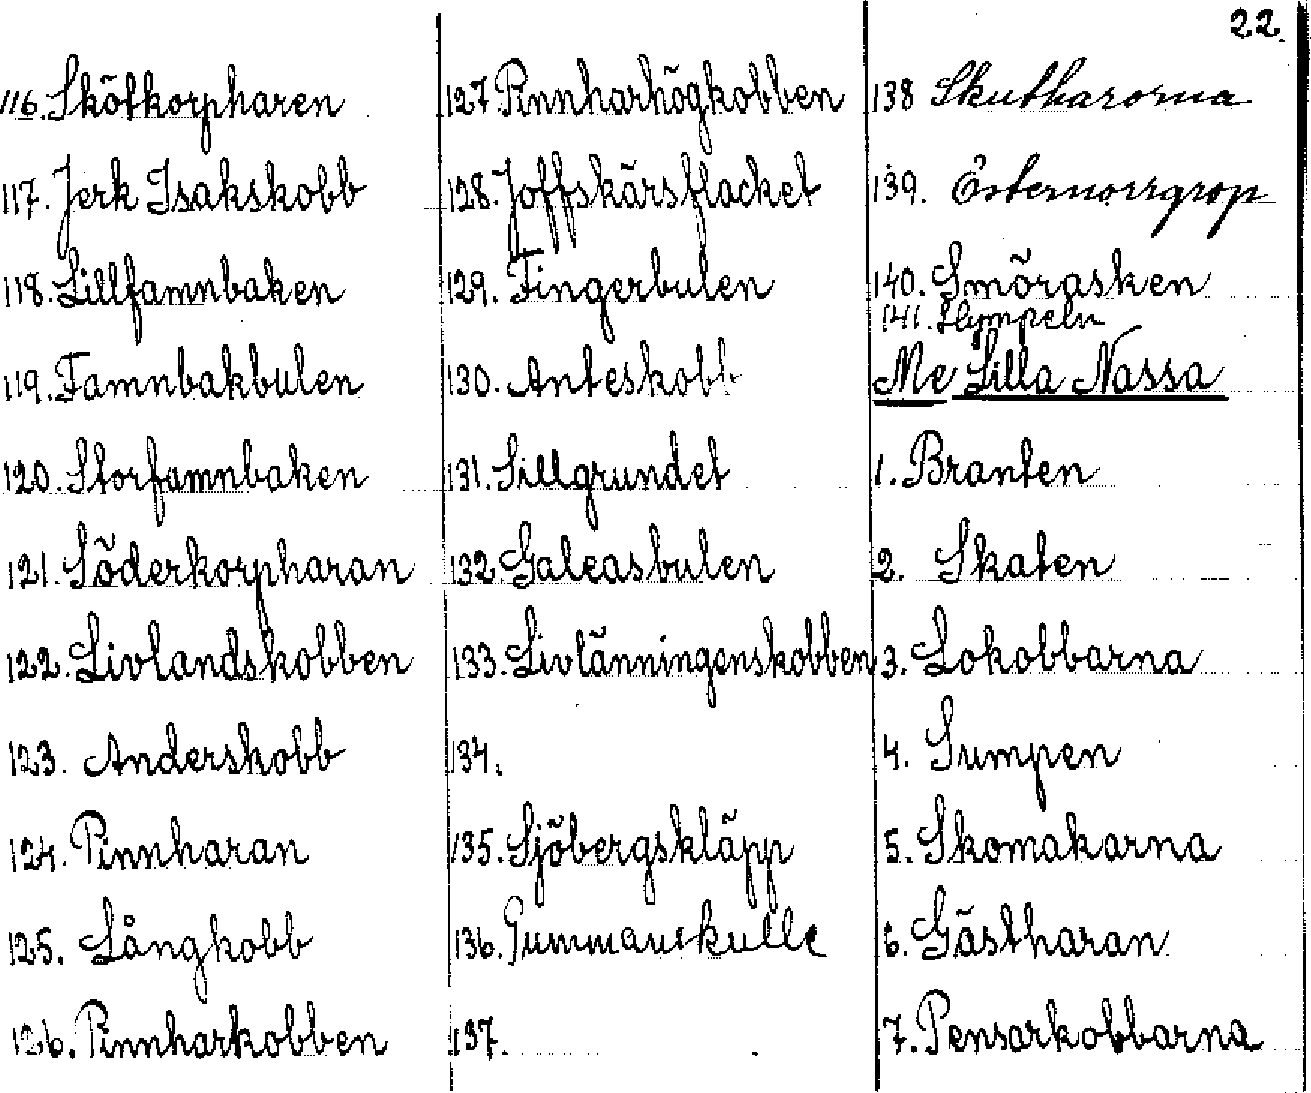 22.
116. Skötkorpharen
117. Jerk Isakskobb
118. Lillfamnbaken
119. Famnbakbulen
120. Storfamnbaken
121. Söderkorpharan
122. Livlandskobben
123. Anderskobb
124. Pinnharan
125. Långkobb
126. Pinnharkobben
127. Pinnharhögkobben
128. Joffskärsflacket
129. Fingerbulen
130. Anteskobb
131. Sillgrundet
132. Galeasbulen
133. Livlänningenskobben
134.
135. Sjöbergskläpp
136. Gummanskulle
137.
138 Skutharorna
139. Östernorrgrop
140. Smörasken
141. Stympeln
Me Lilla Nassa
1. Branten
2. Skaten
3. Lokobbarna
4. Sumpen
5. Skomakarna
6. Gästharan
7. Pensarkobbarna